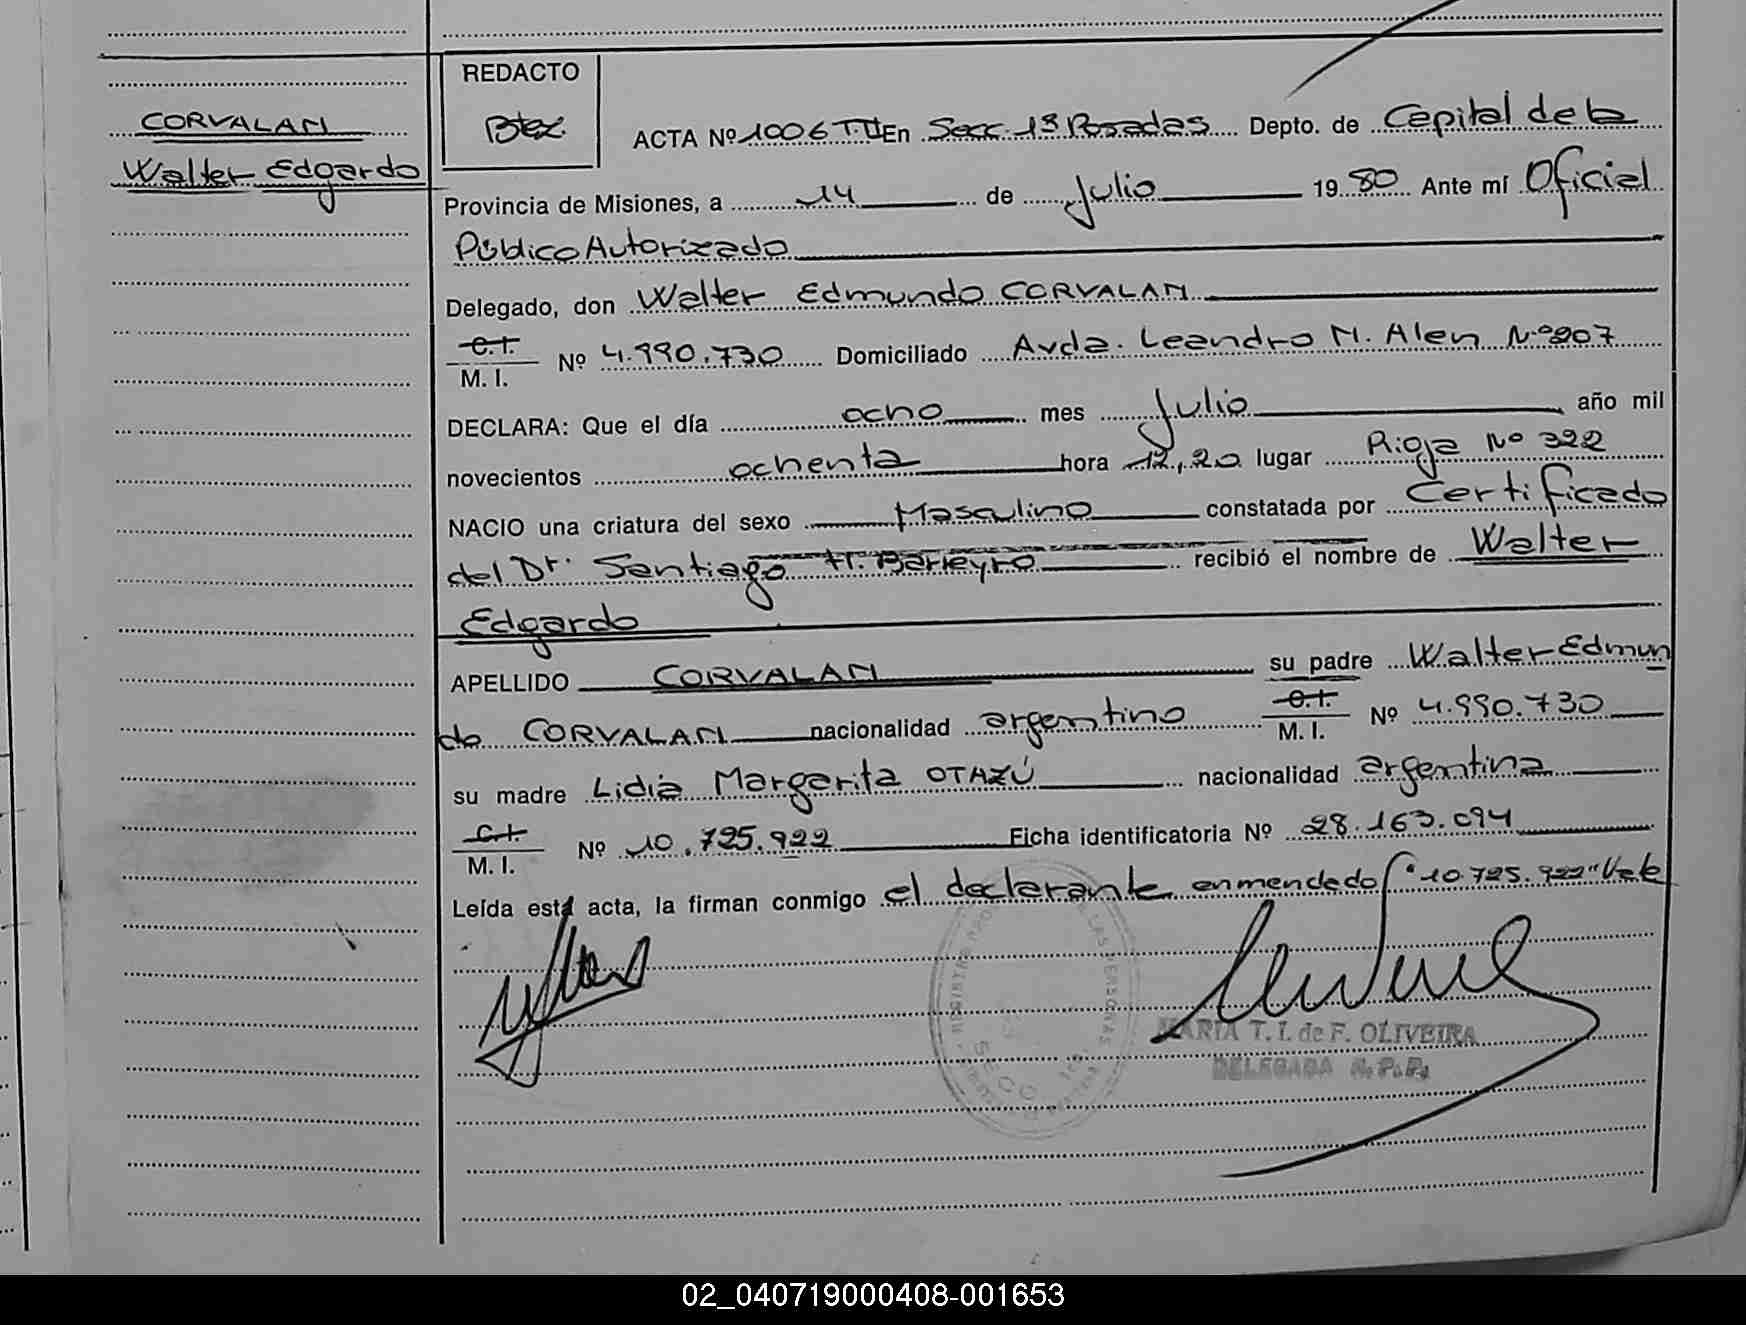 CORVALAN
Walter Edgardo
REDACTO
ACTA Nº 1006 T II En Secc. 1ª Posadas Depto. de Capital de la
Provincia de Misiones, a 14 de Julio 1980 Ante mí Oficial
Público Autorizado
Delegado, don Walter Edmundo CORVALAN
C.I.
M. I. Nº 4.990.730 Domiciliado Avda. Leandro N. Alen Nº 207
DECLARA: Que el día ocho mes Julio año mil
novecientos ochenta hora 12,20 lugar Rioja Nº 322
NACIO una criatura del sexo Masculino constatada por Certificado
del Dr. Santiago H. Barreyro recibió el nombre de Walter
Edgardo
APELLIDO CORVALAN su padre Walter Edmun
do CORVALAN nacionalidad argentino C.I. M. I. Nº 4.990.730
su madre Lidia Margarita OTAZÚ nacionalidad argentina
C.I.
M. I. Nº 10.725.922 Ficha identificatoria Nº 28.163.094
Leída está acta, la firman conmigo el declarante enmendado "10.725.922" Vale
MARIA T. I. de F. OLIVEIRA
DELEGADA R. P. P.
02_040719000408-001653